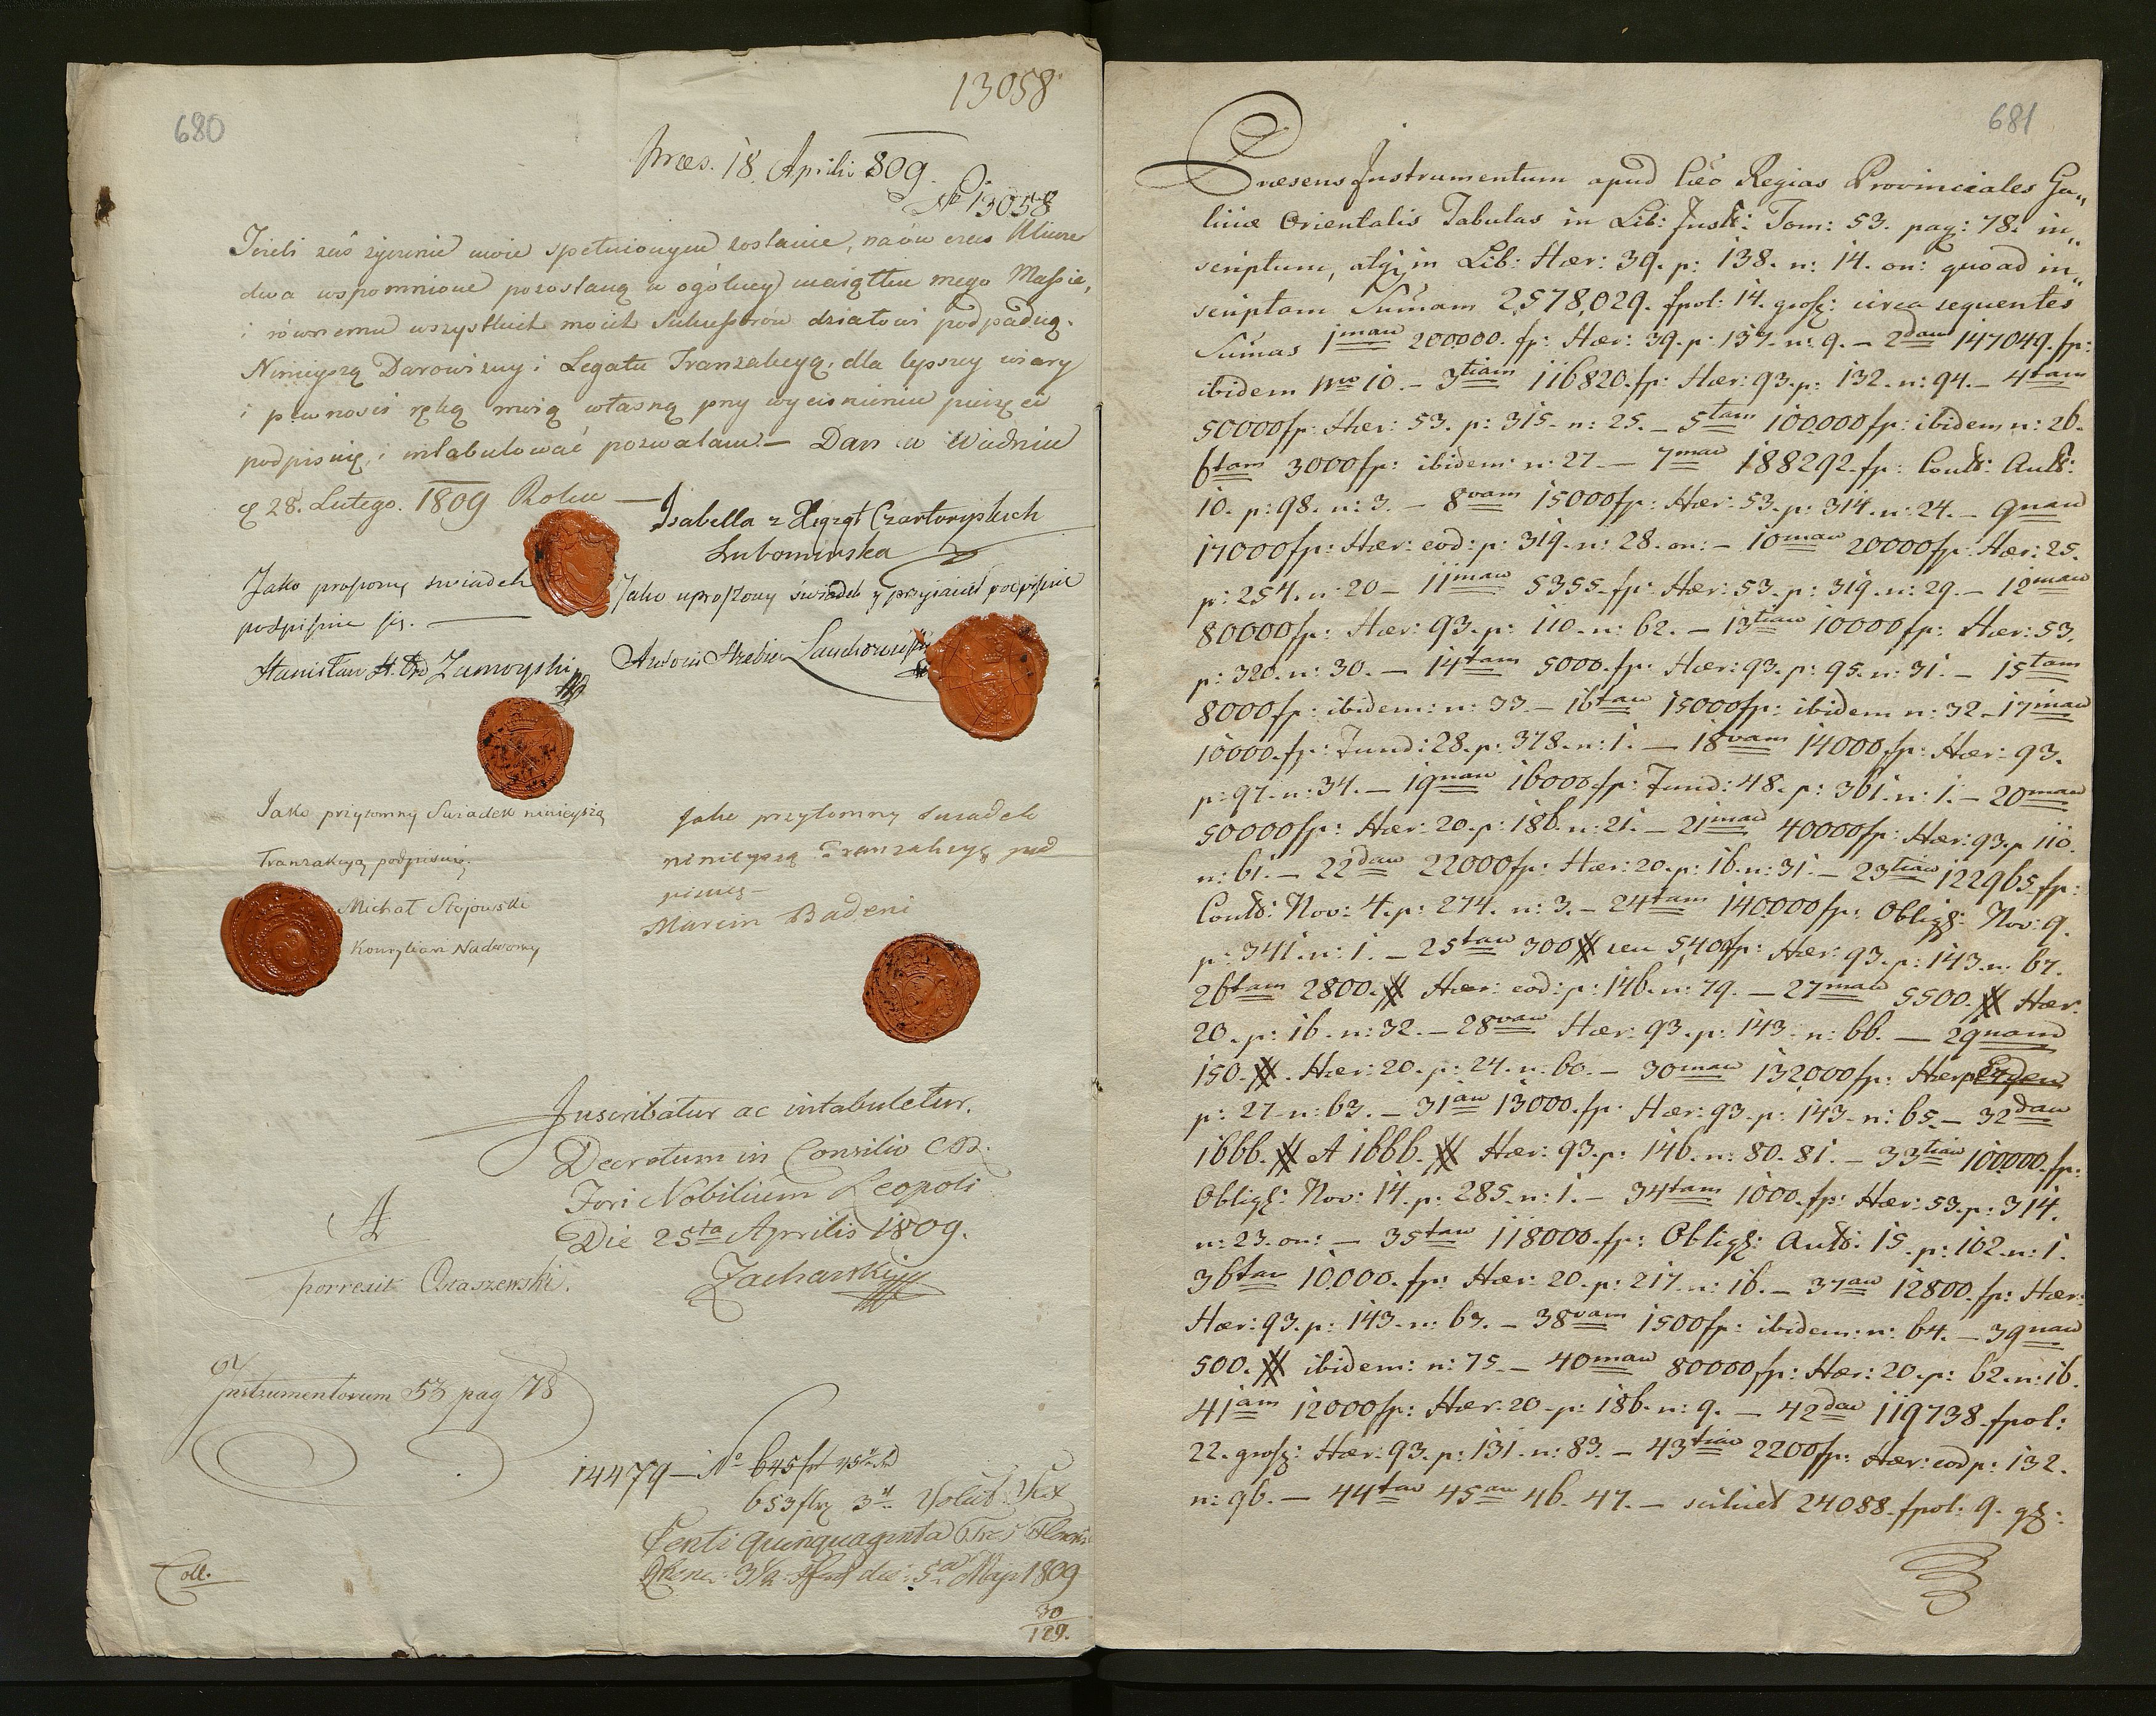 680
13058
Præs. 18. Aprilis 809.
No 13058
Jeżeli zaś życzenie moie spełnionym zostanie, naówczas Klucze
dwa wspomnione pozostaną w ogólney maiątku mego Massie,
i równemu wszystkich moich Sukcessorów działowi podpadną.
Ninieyszą Darowizny i Legatu Tranzakcyą, dla lepszey wiary
i pewności ręką moią własną przy wyciśnieniu pieczęci
podpisuię, i intabulować pozwalam. — Dan w Wiedniu
28. Lutego. 1809 Roku —
Isabella z Xiążąt Czartoryskich
Lubomirska
Jako proszony swiadek
podpisuie się. —
Stanisław Zamoyski
Jako uproszony świadek y przyiaciel podpisuie
Antoni
Jako przytomny Swiadek ninieyszą
Tranzakcyą podpisuię.
Michał Stojowski
Konsyliarz Nadworny
Jako przytomny swiadek
ninieyszą Tranzakcyę pod
pisuię —
Marcin Badeni
Inscribatur ac intabuletur.
Decretum in Consilio CR.
Fori Nobilium Leopoli
Die 25ta Aprilis 1809.
Zacharski
porrexit Ostaszewski.
Instrumentorum 53 pag 78
14479 — No 645 fr 45
653 3 Solut. Sex
Centi quinquaginta Tres Floreni
die 5a Maji 1809
30
129.
Coll.
681
Præsens Instrumentum apud Cæo Regias Provinciales Ga„
liciæ Orientalis Tabulas in Lib: Instr: Tom: 53. pag: 78. in„
scriptum, atq in Lib: Hær: 39. p: 138. n: 14. on: quoad in„
scriptam Summam 2,578,029. fpol: 14. gross: circa sequentes
Summas 1mam 200000. fp: Hær: 39. p: 137. n: 9. — 2dam 147049. fp:
ibidem nro 10. — 3tiam 116820. fp: Hær: 93. p: 132. n: 94. — 4tam
50000 fp: Hær: 53. p: 315. n: 25. — 5tam 100000 fp: ibidem n: 26.
6tam 3000 fp: ibidem n: 27. — 7mam 188292. fp: Contr: Antr:
10. p: 98. n: 3. — 8vam 15000 fp: Hær: 53. p: 314. n: 24. — 9nam
17000 fp: Hær: eod: p: 319. n: 28. on: — 10mam 20000 fp: Hær: 25.
p: 254. n: 20 — 11mam 5355 fp: Hær: 53. p: 319. n: 29. — 12mam
80000 fp: Hær: 93. p: 110. n: 62. — 13tiam 10000 fp: Hær: 53.
p: 320. n: 30. — 14tam 5000. fp: Hær: 93. p: 95. n: 31. — 15tam
8000 fp: ibidem: n: 33. — 16tam 15000 fp: ibidem n: 32 — 17mam
10000. fp: Fund: 28. p: 378. n: 1. — 18vam 14000 fp: Hær: 93.
p: 97. n: 34. — 19nam 16000. fp: Fund: 48. p: 361. n: 1. — 20mam
50000 fp: Hær: 20. p: 186. n: 21. — 21mam 40000 fp: Hær: 93. p 110.
n: 61. — 22dam 22000 fp: Hær: 20. p: 16. n: 31. — 23tiam 122965 fp:
Contr: Nov: 4. p: 274. n: 3. — 24tam 140000 fp: Obligg: Nov: 9.
p: 341. n: 1. — 25tam 300 # seu 5,400 fp: Hær: 93. p: 143. n: 67.
26tam 2800. # Hær: eod: p: 146. n: 79. — 27mam 5500. # Hær:
20. p: 16. n: 32. — 28vam Hær: 93. p: 143. n: 66. — 29nam
150. #. Hær: 20. p: 24. n: 60. — 30mam 132000 fp: Hær:
p: 27. n: 63. — 31am 13000. fp. Hær: 93. p: 143. n: 65. — 32dam
1666. # et 1666. # Hær: 93. p: 146. n: 80. 81. — 33tiam 100000. fp:
Obligg: Nov: 14. p: 285. n: 1. — 34tam 1000. fp: Hær: 53. p: 314.
n: 23. on: — 35tam 118000. fp: Obligg: Antr: 15. p: 102. n: 1.
36tam 10000. fp: Hær: 20. p: 217. n: 16. — 37am 12800. fp: Hær:
Hær: 93. p: 143. n: 63. — 38vam 1500 fp: ibidem: n: 64. — 39nam
500. # ibidem: n: 75. — 40mam 80000 fp: Hær: 20. p: 62. n: 16.
41am 12000 fp: Hær: 20. p: 186. n: 9. — 42dam 119738 fpol:
22. gross: Hær: 93. p: 131. n: 83. — 43tiam 2200 fp: Hær: eod p: 132.
n: 96. — 44tam 45am 46. 47. — scilicet 24088 fpol: 9. gr: